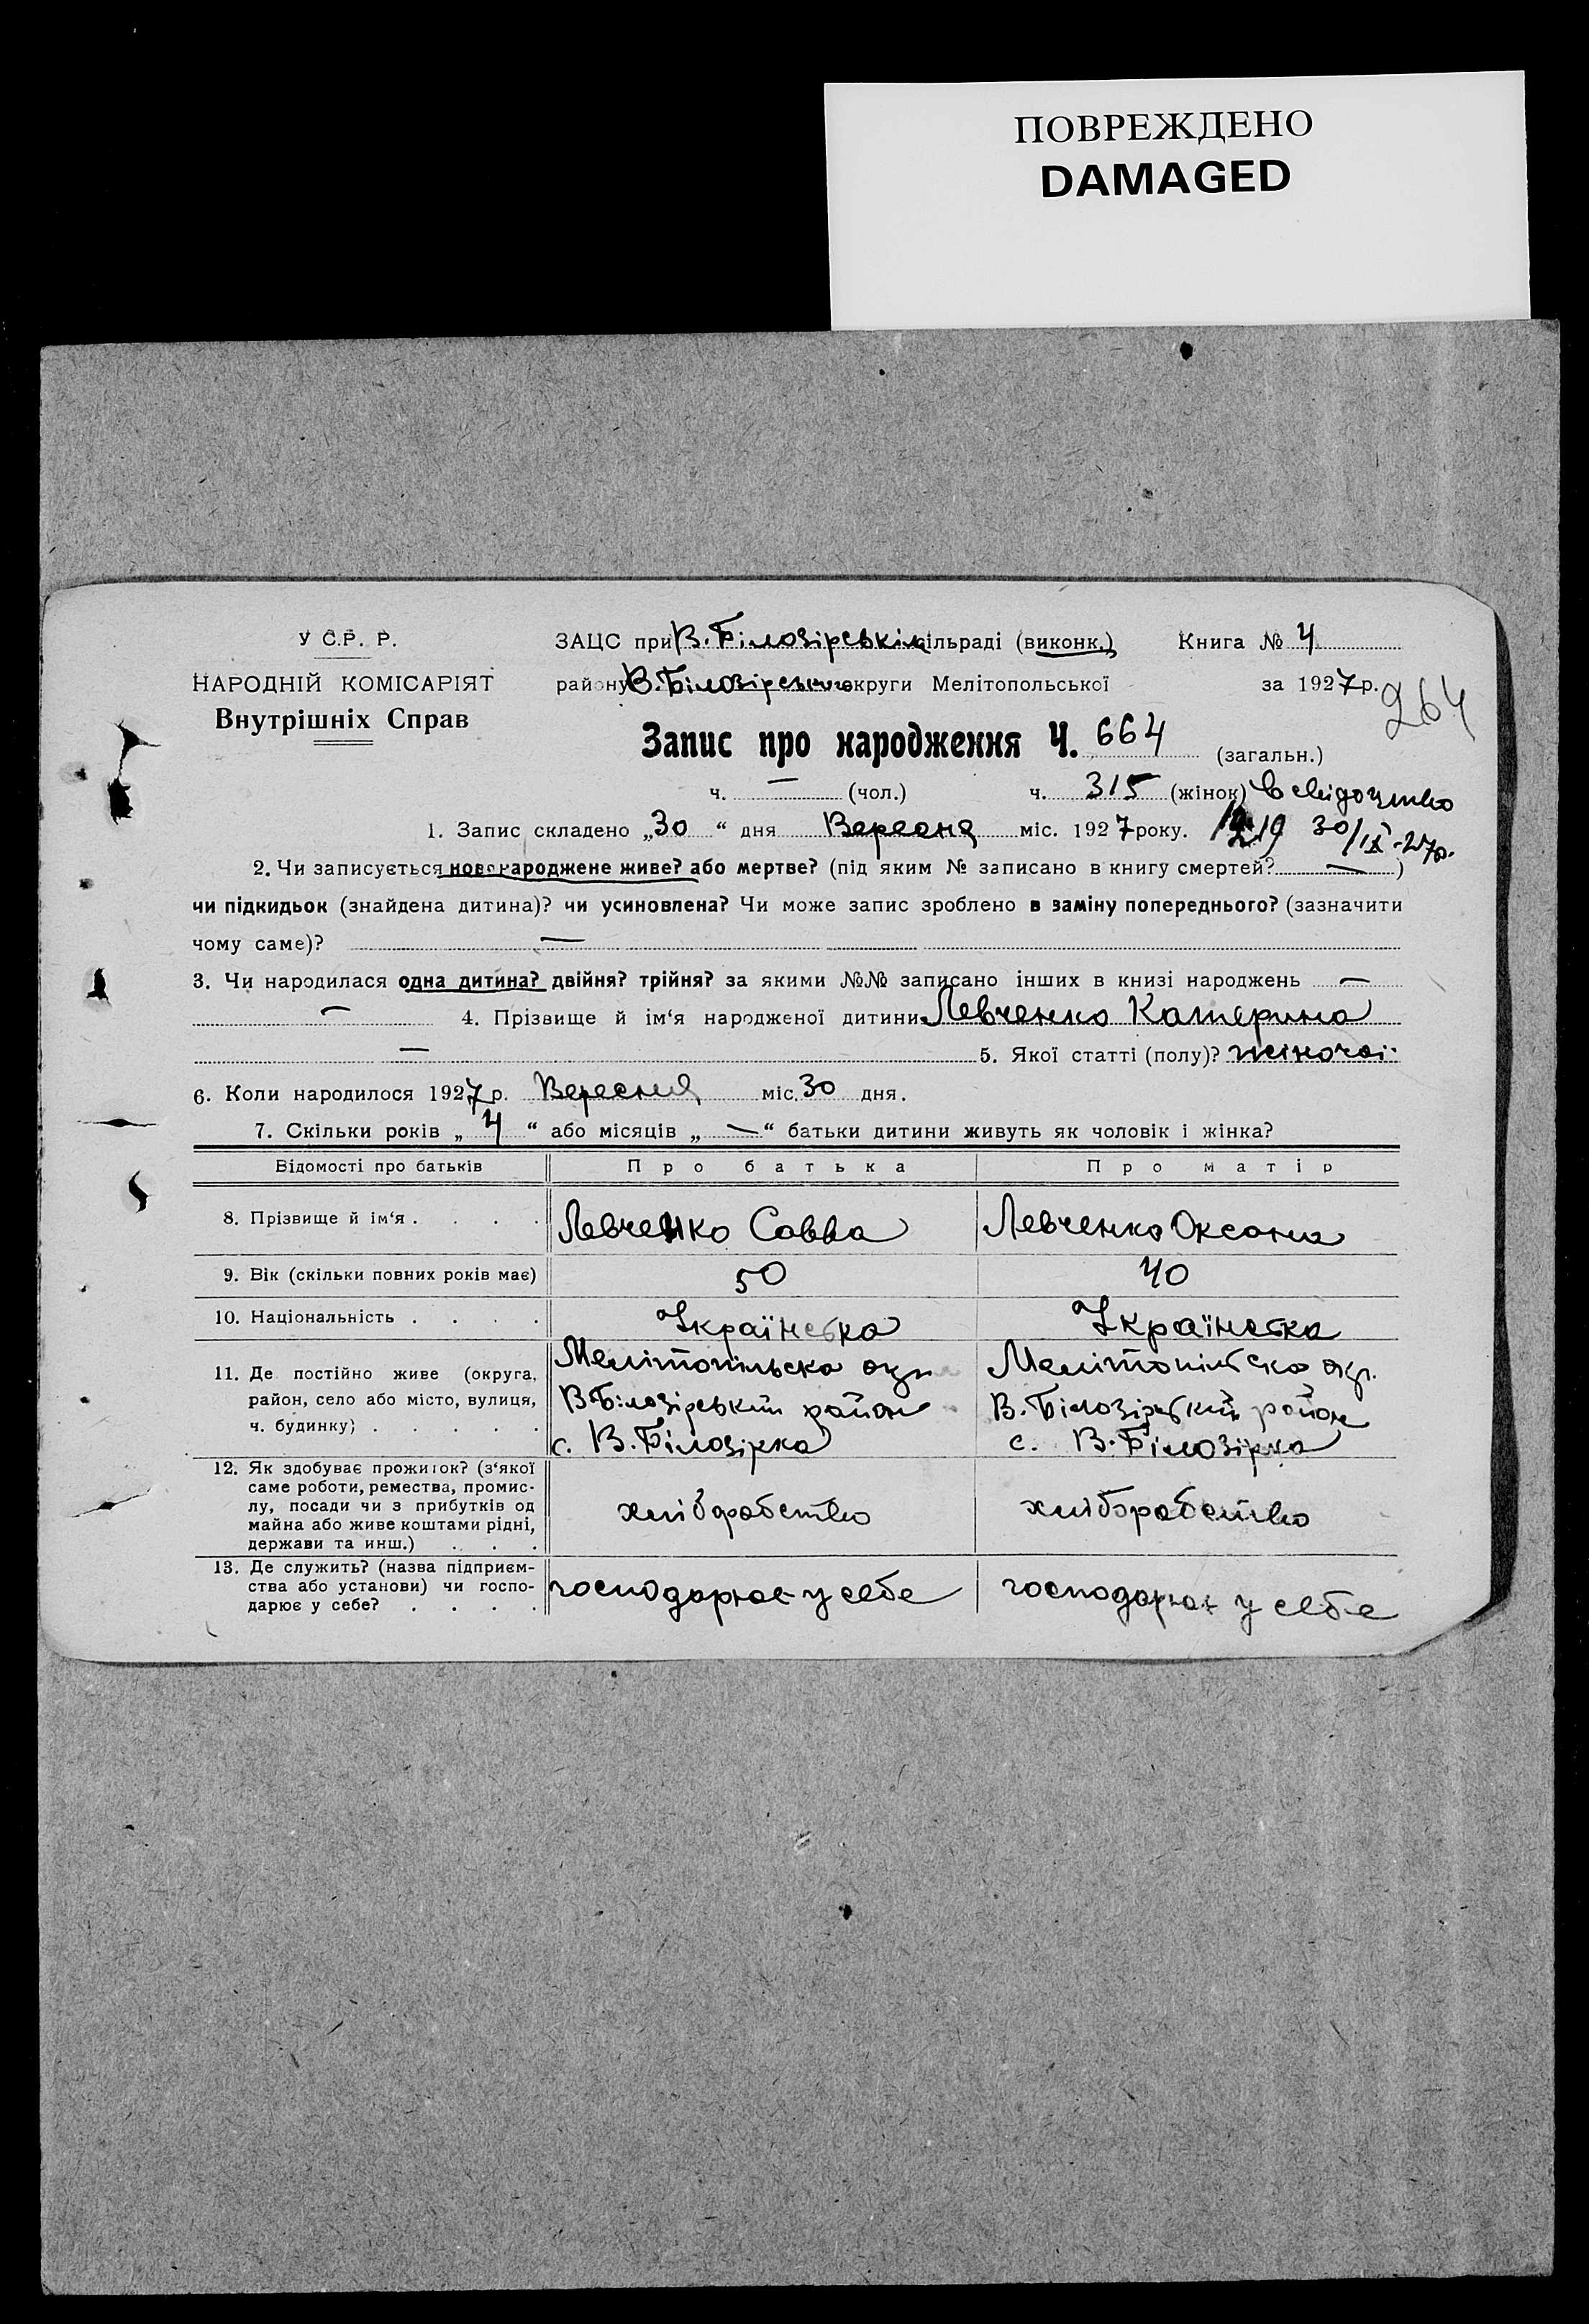 ПОВРЕЖДЕНО
DAMAGED
У С.Р. Р.
НАРОДНІЙ КОМІСАРІЯТ
Внутрішніх Справ
ЗАЦС при В. Білозірській сільраді (виконк.) Книга № 4
району В. Білозірського округи Мелітопольської за 1927 р.
264
Запис про народження Ч. 664 (загальн.)
ч. — (чол.) ч. 315 (жінок)
1. Запис складено „30“ дня Вересня міс. 1927 року. 30/IX-27р.
2. Чи записується новонароджене живе? або мертве? (під яким № записано в книгу смертей? — )
чи підкидьок (знайдена дитина)? чи усиновлена? Чи може запис зроблено в заміну попереднього? (зазначити
чому саме)? —
3. Чи народилася одна дитина? двійня? трійня? за якими №№ записано інших в книзі народжень —
— 4. Прізвище й ім‘я народженої дитини Левченко Катерина
— 5. Якої статті (полу)? жіночої
6. Коли народилося 1927 р. Вересня міс. 30 дня.
7. Скільки років „ 4 “ або місяців „ — “ батьки дитини живуть як чоловік і жінка?
Відомості про батьків Про батька Про матір
8. Прізвище й ім‘я . . . . Левченко Савва Левченко Оксана
9. Вік (скільки повних років має) 50 40
10. Національність . . . . Українська Українська
11. Де постійно живе (округа,
район, село або місто, вулиця,
ч. будинку) . . . . .
Мелітопільска окр.
В. Білозірський район
с. В. Білозірка
Мелітопільска окр.
В. Білозірський район
с. В. Білозірка
12. Як здобуває прожиток? (з‘якої
саме роботи, ремества, промис-
лу, посади чи з прибутків од
майна або живе коштами рідні,
держави та инш.) . . .
хліборобство хліборобство
13. Де служить? (назва підприєм-
ства або установи) чи госпо-
дарює у себе? . . . .
господарює у себе господарює у себе